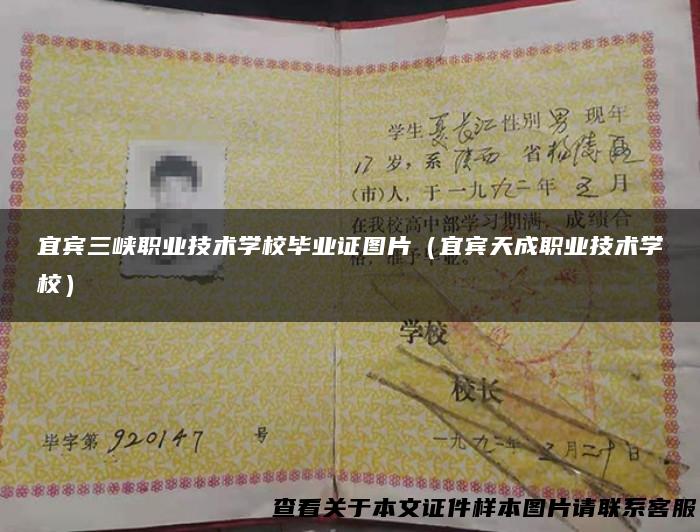 学生夏长江性别男 现年
17岁，系陕西 省杨陵区
(市)人，于一九九二年 五月
在我校高中部学习期满，成绩合
宜宾三峡职业技术学校毕业证图片（宜宾天成职业技术学
校）
格，准予毕业。
学校
校长
毕字第 920147 号
一九九二年 五月二十日
查看关于本文证件样本图片请联系客服